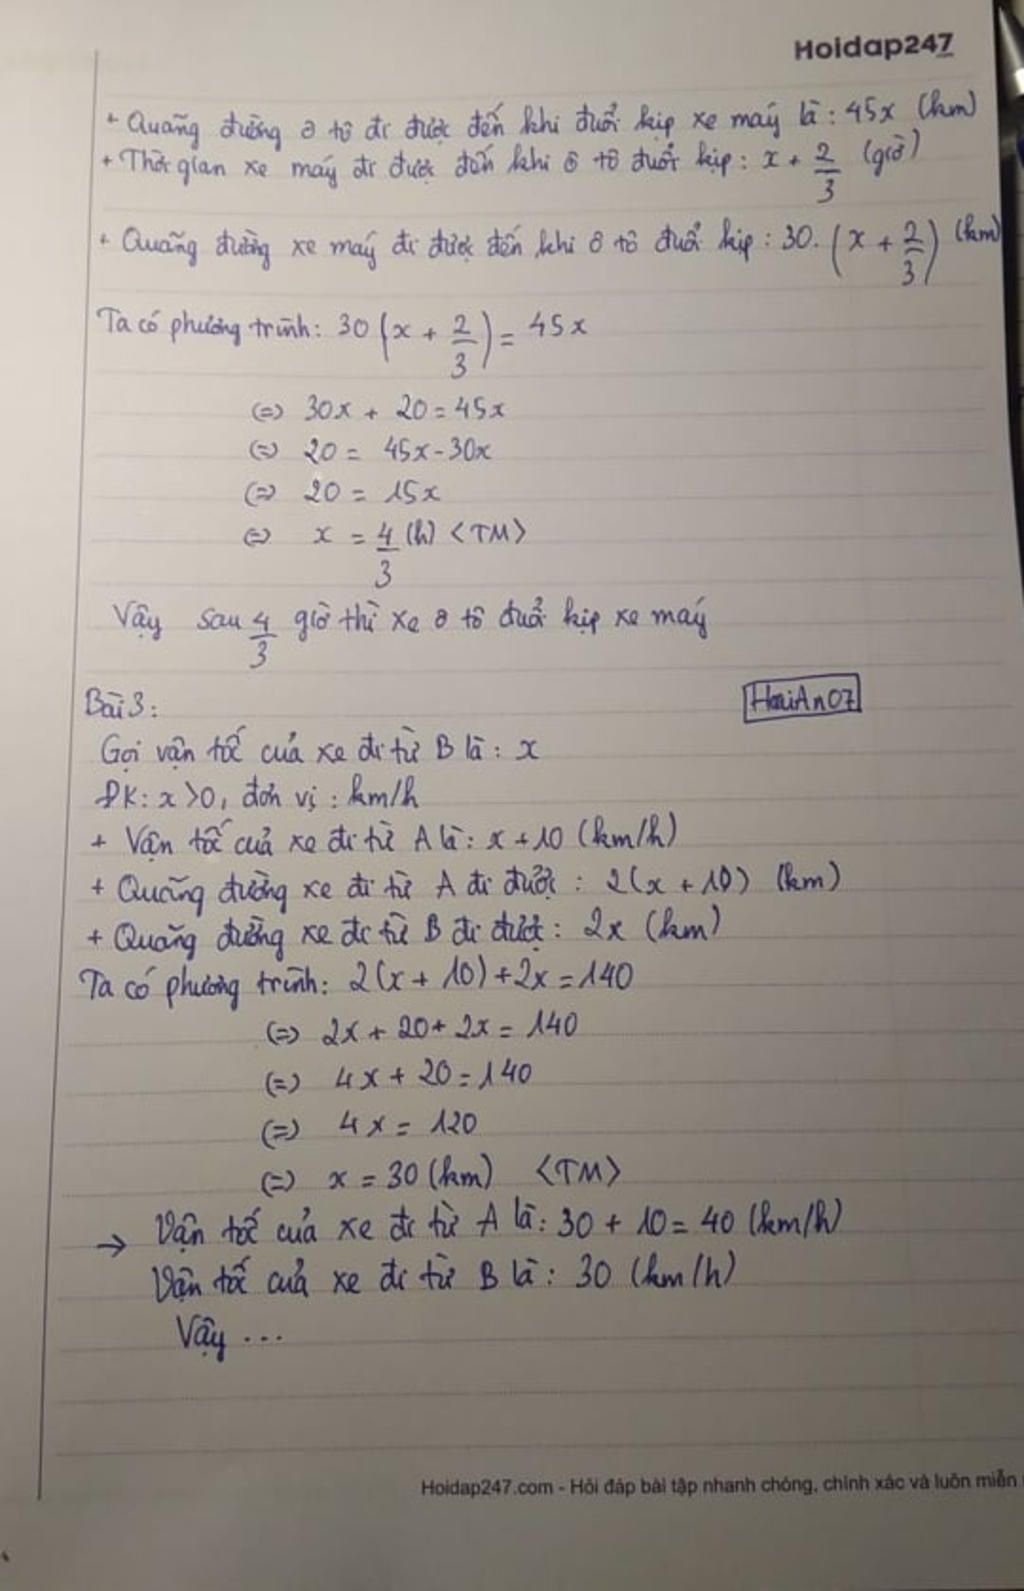 Hoidap247
+ Quãng đường ô tô đi được đến khi đuổi kịp xe máy là : 45x (km)
+ Thời gian xe máy đi được đến khi ô tô đuổi kịp : x + 2/3 (giờ)
+ Quãng đường xe máy đi được đến khi ô tô đuổi kịp : 30. (x + 2/3) (km)
Ta có phương trình: 30 (x + 2/3) = 45x
(=) 30x + 20 = 45x
(=) 20 = 45x - 30x
(=) 20 = 15x
(=) x = 4/3 (h) <TM>
Vậy sau 4/3 giờ thì xe ô tô đuổi kịp xe máy
Bài 3:
HoaiAn07
Gọi vận tốc của xe đi từ B là : x
ĐK: x >0, đơn vị : km/h
+ Vận tốc của xe đi từ A là : x + 10 (km/h)
+ Quãng đường xe đi từ A đi được : 2(x + 10) (km)
+ Quãng đường xe đi từ B đi được : 2x (km)
Ta có phương trình: 2(x + 10) + 2x = 140
(=) 2x + 20 + 2x = 140
(=) 4x + 20 = 140
(=) 4x = 120
(=) x = 30 (km) <TM>
→ Vận tốc của xe đi từ A là : 30 + 10 = 40 (km/h)
Vận tốc của xe đi từ B là : 30 (km/h)
Vậy ...
Hoidap247.com - Hỏi đáp bài tập nhanh chóng, chính xác và luôn miễn